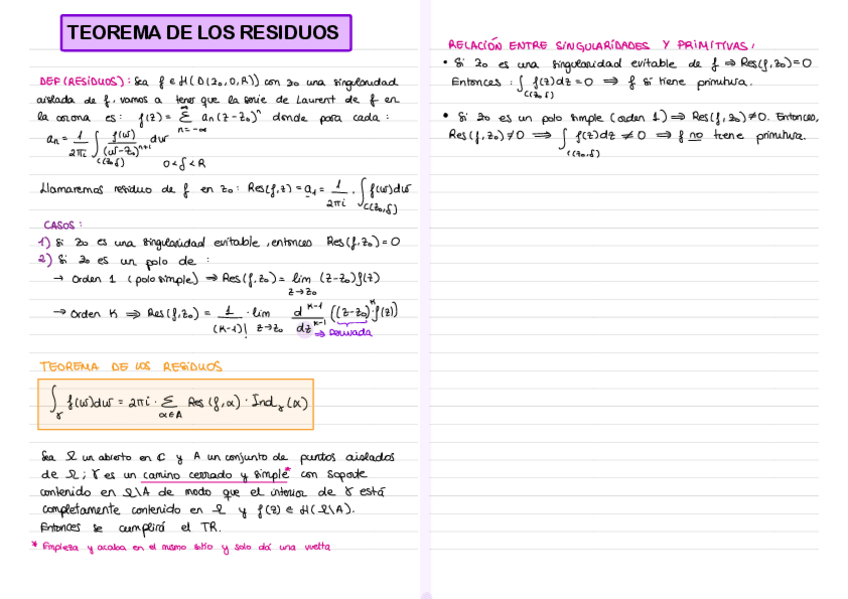 TEOREMA DE LOS RESIDUOS
DEF (RESIDUOS): Sea f ∈ H(D(z₀,0,R)) con z₀ una singularidad
aislada de f, vamos a tener que la serie de Laurent de f en
la corona es: f(z) = Σ_{n=-∞}^{∞} aₙ(z-z₀)ⁿ donde para cada:
aₙ = 1/(2πi) ∫_{C(z₀,ρ)} f(w)/(w-z₀)ⁿ⁺¹ dw
0 < ρ < R
Llamaremos residuo de f en z₀: Res(f,z) = a₋₁ = 1/(2πi) · ∫_{C(z₀,ρ)} f(w)dw
CASOS:
1) Si z₀ es una singularidad evitable, entonces Res(f,z₀)=0
2) Si z₀ es un polo de:
→ Orden 1 (polo simple) ⇒ Res(f,z₀) = lim_{z→z₀} (z-z₀)f(z)
→ Orden K ⇒ Res(f,z₀) = 1/(K-1)! · lim_{z→z₀} d^{K-1}/dz^{K-1} ((z-z₀)^K f(z))
⇒ Derivada
TEOREMA DE LOS RESIDUOS
∫_γ f(w)dw = 2πi · Σ_{α∈A} Res(f,α) · Ind_γ(α)
Sea Ω un abierto en ℂ y A un conjunto de puntos aislados
de Ω; γ es un camino cerrado y simple* con soporte
contenido en Ω\A de modo que el interior de γ está
completamente contenido en Ω y f(z) ∈ H(Ω\A).
Entonces se cumplirá el TR.
* Empieza y acaba en el mismo sitio y solo dá una vuelta
RELACIÓN ENTRE SINGULARIDADES Y PRIMITIVAS:
• Si z₀ es una singularidad evitable de f ⇒ Res(f,z₀)=0
Entonces: ∫_{C(z₀,ρ)} f(z)dz = 0 ⇒ f si tiene primitiva.
• Si z₀ es un polo simple (orden 1) ⇒ Res(f,z₀)≠0. Entonces,
Res(f,z₀)≠0 ⇒ ∫_{C(z₀,ρ)} f(z)dz ≠ 0 ⇒ f no tiene primitiva.